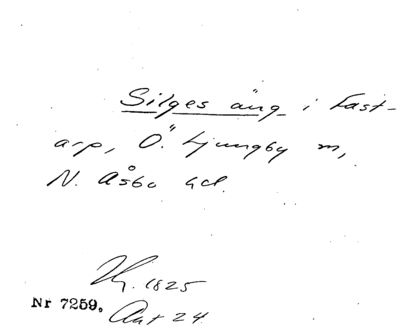 Silges äng i Fast-
arp, Ö. Ljungby sn,
N. Åsbo hd.
Hy. 1825
Nr 7259, Akt 24